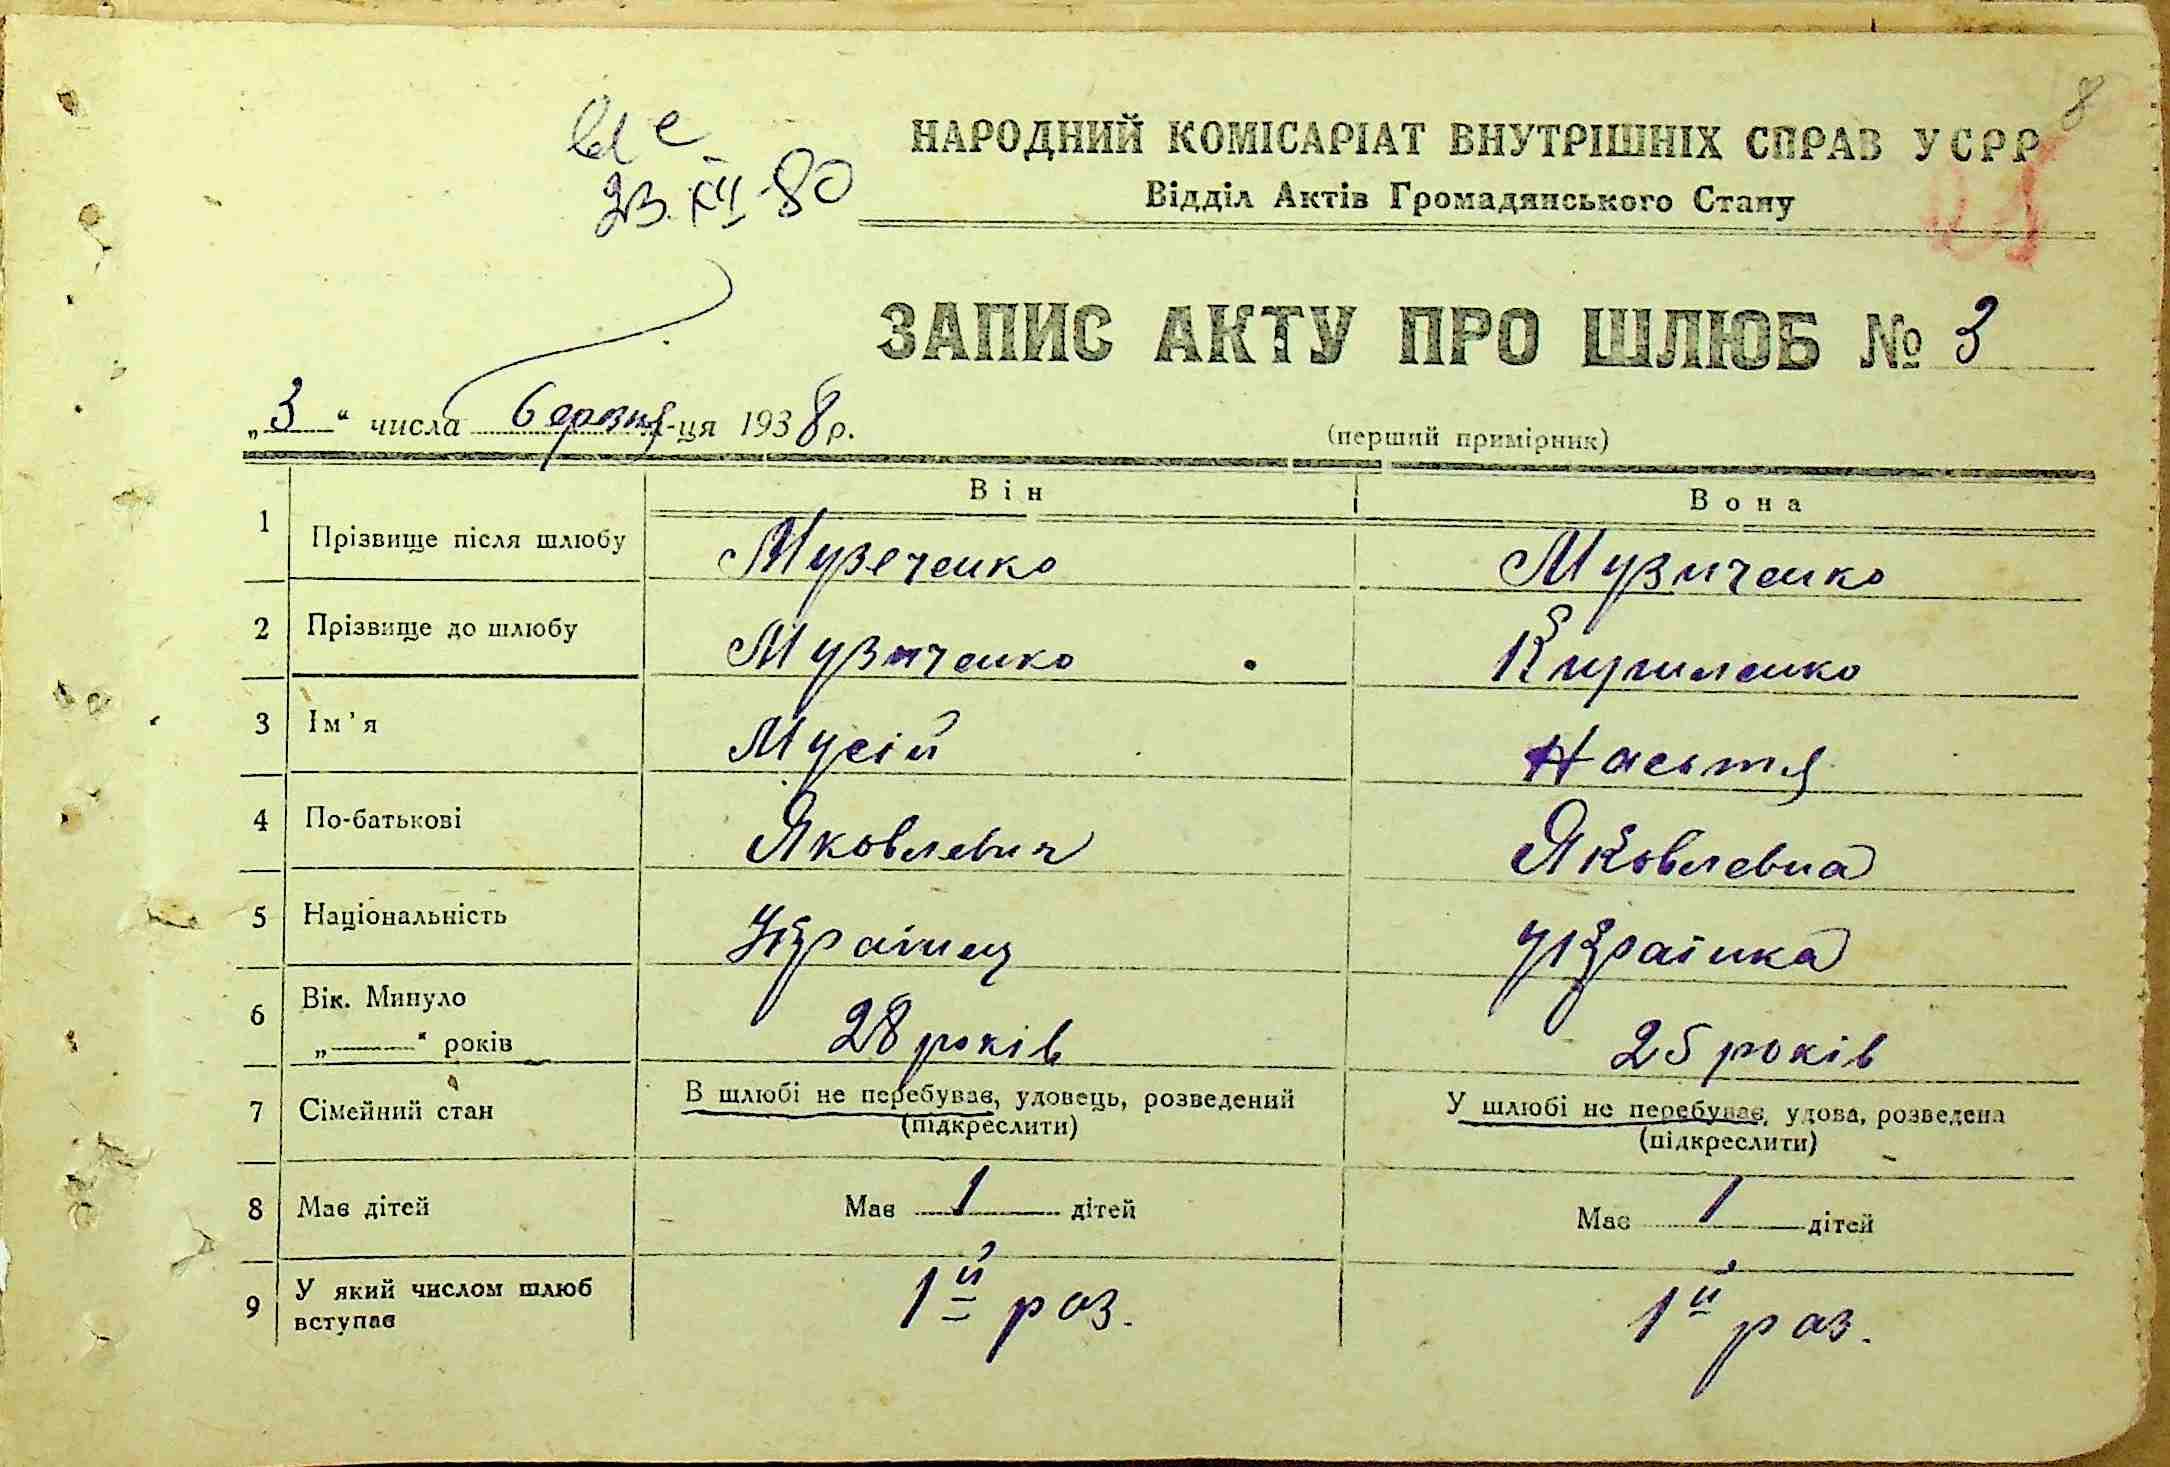 8
НАРОДНИЙ КОМІСАРІАТ ВНУТРІШНІХ СПРАВ УСРР
Відділ Актів Громадянського Стану
23.XII-80
ЗАПИС АКТУ ПРО ШЛЮБ № 3
„3“ числа березня м-ця 1938 р.
(перший примірник)
Він Вона
1 Прізвище після шлюбу Музеченко Музиченко
2 Прізвище до шлюбу Музиченко Кириленко
3 Ім'я Мусій Настя
4 По-батькові Яковлевич Яковлевна
5 Національність Українец українка
6 Вік. Минуло
„———“ років 28 років 25 років
7 Сімейний стан В шлюбі не перебував, удовець, розведений У шлюбі не перебуває, удова, розведена
(підкреслити) (підкреслити)
8 Має дітей Має 1 дітей Має 1 дітей
9 У який числом шлюб
вступає 1й раз. 1й раз.